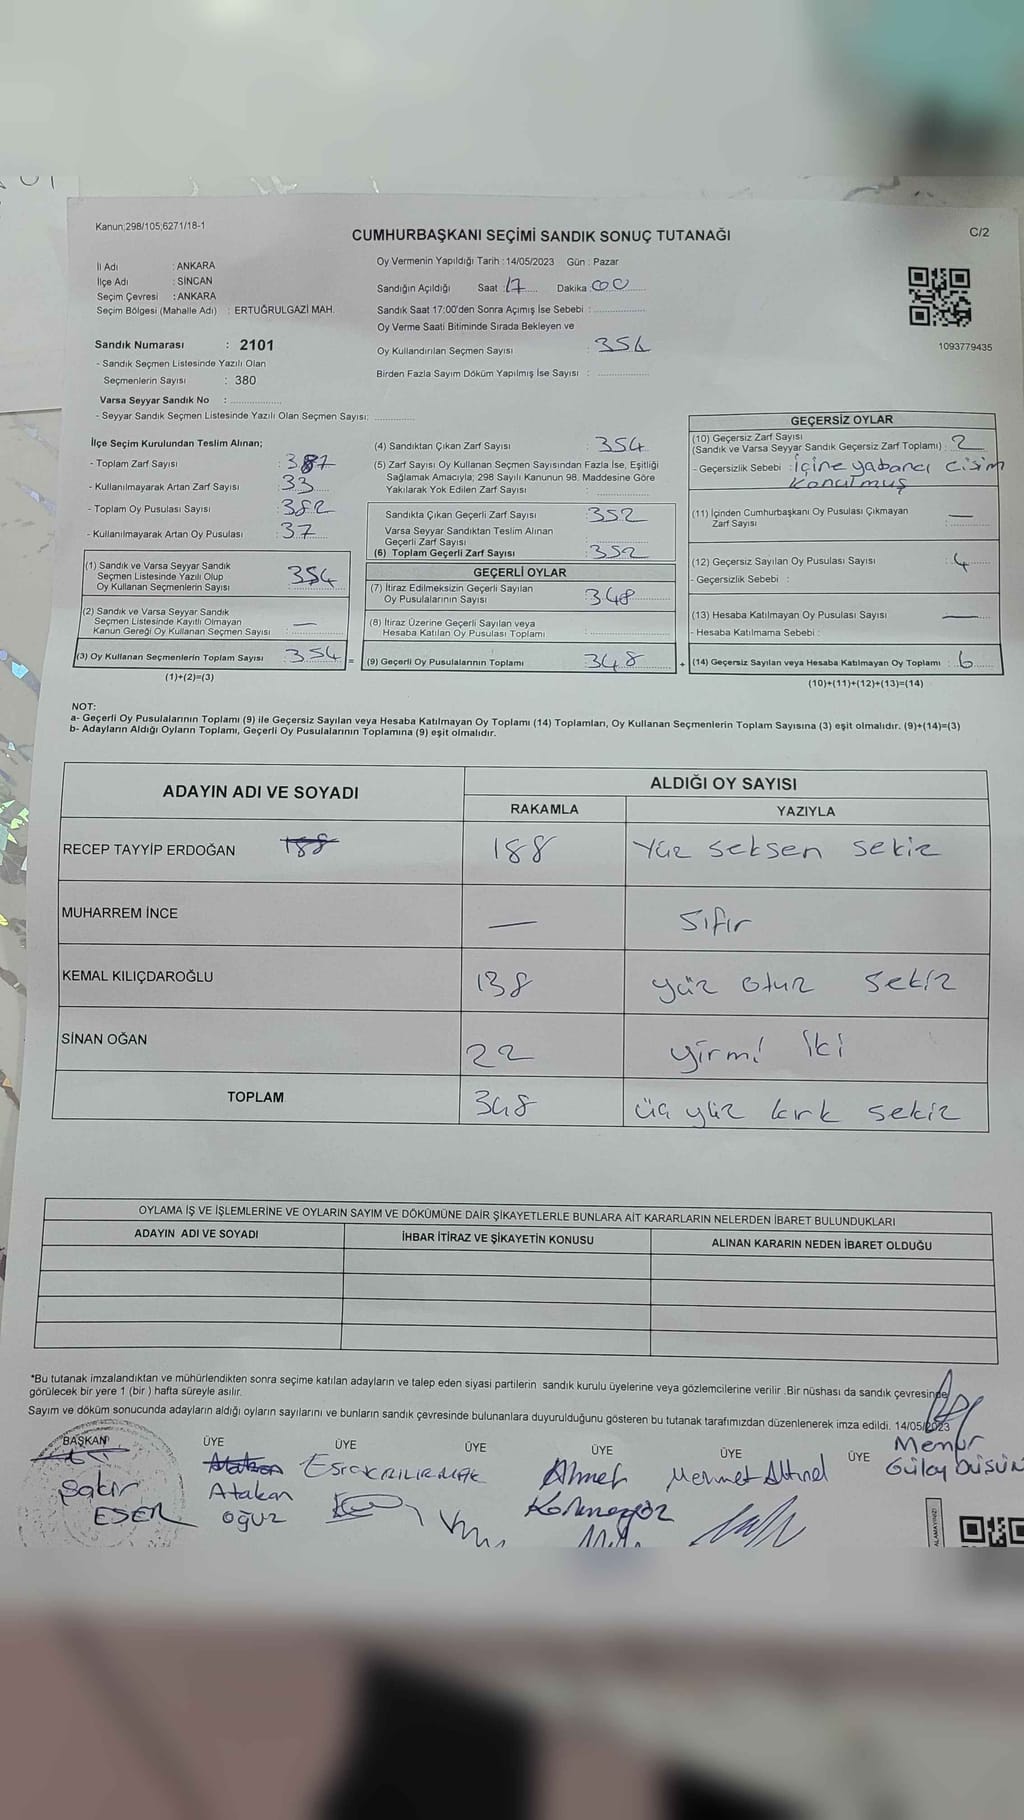 Kanun;298/105;6271/18-1
CUMHURBAŞKANI SEÇİMİ SANDIK SONUÇ TUTANAĞI
C/2
İl Adı : ANKARA
İlçe Adı : SİNCAN
Seçim Çevresi : ANKARA
Seçim Bölgesi (Mahalle Adı) : ERTUĞRULGAZİ MAH.
Sandık Numarası : 2101
- Sandık Seçmen Listesinde Yazılı Olan
Seçmenlerin Sayısı : 380
Varsa Seyyar Sandık No :
- Seyyar Sandık Seçmen Listesinde Yazılı Olan Seçmen Sayısı:
Oy Vermenin Yapıldığı Tarih : 14/05/2023 Gün : Pazar
Sandığın Açıldığı Saat : 17 Dakika : 00
Sandık Saat 17:00'den Sonra Açımış İse Sebebi :
Oy Verme Saati Bitiminde Sırada Bekleyen ve
Oy Kullandırılan Seçmen Sayısı : 354
Birden Fazla Sayım Döküm Yapılmış İse Sayısı :
1093779435
İlçe Seçim Kurulundan Teslim Alınan;
- Toplam Zarf Sayısı : 387
- Kullanılmayarak Artan Zarf Sayısı : 33
- Toplam Oy Pusulası Sayısı : 382
- Kullanılmayarak Artan Oy Pusulası : 37
(1) Sandık ve Varsa Seyyar Sandık
Seçmen Listesinde Yazılı Olup
Oy Kullanan Seçmenlerin Sayısı 354
(2) Sandık ve Varsa Seyyar Sandık
Seçmen Listesinde Kayıtlı Olmayan
Kanun Gereği Oy Kullanan Seçmen Sayısı : —
(3) Oy Kullanan Seçmenlerin Toplam Sayısı : 354 =
(1)+(2)=(3)
(4) Sandıktan Çıkan Zarf Sayısı : 354
(5) Zarf Sayısı Oy Kullanan Seçmen Sayısından Fazla İse, Eşitliği
Sağlamak Amacıyla; 298 Sayılı Kanunun 98. Maddesine Göre
Yakılarak Yok Edilen Zarf Sayısı :
Sandıkta Çıkan Geçerli Zarf Sayısı : 352
Varsa Seyyar Sandıktan Teslim Alınan
Geçerli Zarf Sayısı :
(6) Toplam Geçerli Zarf Sayısı : 352
GEÇERLİ OYLAR
(7) İtiraz Edilmeksizin Geçerli Sayılan
Oy Pusulalarının Sayısı : 348
(8) İtiraz Üzerine Geçerli Sayılan veya
Hesaba Katılan Oy Pusulası Toplamı :
(9) Geçerli Oy Pusulalarının Toplamı : 348 +
GEÇERSİZ OYLAR
(10) Geçersiz Zarf Sayısı
(Sandık ve Varsa Seyyar Sandık Geçersiz Zarf Toplamı) : 2
- Geçersizlik Sebebi : içine yabancı cisim
konulmuş
(11) İçinden Cumhurbaşkanı Oy Pusulası Çıkmayan
Zarf Sayısı : —
(12) Geçersiz Sayılan Oy Pusulası Sayısı : 4
- Geçersizlik Sebebi :
(13) Hesaba Katılmayan Oy Pusulası Sayısı : —
- Hesaba Katılmama Sebebi :
(14) Geçersiz Sayılan veya Hesaba Katılmayan Oy Toplamı : 6
(10)+(11)+(12)+(13)=(14)
NOT:
a- Geçerli Oy Pusulalarının Toplamı (9) ile Geçersiz Sayılan veya Hesaba Katılmayan Oy Toplamı (14) Toplamları, Oy Kullanan Seçmenlerin Toplam Sayısına (3) eşit olmalıdır. (9)+(14)=(3)
b- Adayların Aldığı Oyların Toplamı, Geçerli Oy Pusulalarının Toplamına (9) eşit olmalıdır.
ADAYIN ADI VE SOYADI ALDIĞI OY SAYISI
RAKAMLA YAZIYLA
RECEP TAYYİP ERDOĞAN 188 188 Yüz seksen sekiz
MUHARREM İNCE — sıfır
KEMAL KILIÇDAROĞLU 138 yüz otuz sekiz
SİNAN OĞAN 22 yirmi iki
TOPLAM 348 üç yüz kırk sekiz
OYLAMA İŞ VE İŞLEMLERİNE VE OYLARIN SAYIM VE DÖKÜMÜNE DAİR ŞİKAYETLERLE BUNLARA AİT KARARLARIN NELERDEN İBARET BULUNDUKLARI
ADAYIN ADI VE SOYADI İHBAR İTİRAZ VE ŞİKAYETİN KONUSU ALINAN KARARIN NEDEN İBARET OLDUĞU
*Bu tutanak imzalandıktan ve mühürlendikten sonra seçime katılan adayların ve talep eden siyasi partilerin sandık kurulu üyelerine veya gözlemcilerine verilir .Bir nüshası da sandık çevresinde
görülecek bir yere 1 (bir ) hafta süreyle asılır.
Sayım ve döküm sonucunda adayların aldığı oyların sayılarını ve bunların sandık çevresinde bulunanlara duyurulduğunu gösteren bu tutanak tarafımızdan düzenlenerek imza edildi. 14/05/2023
BAŞKAN ÜYE ÜYE ÜYE ÜYE ÜYE ÜYE
Şakir
ESER
Atakan
Atakan
oğuz
Ahmet
Mehmet Altınel
Memur
Gülay